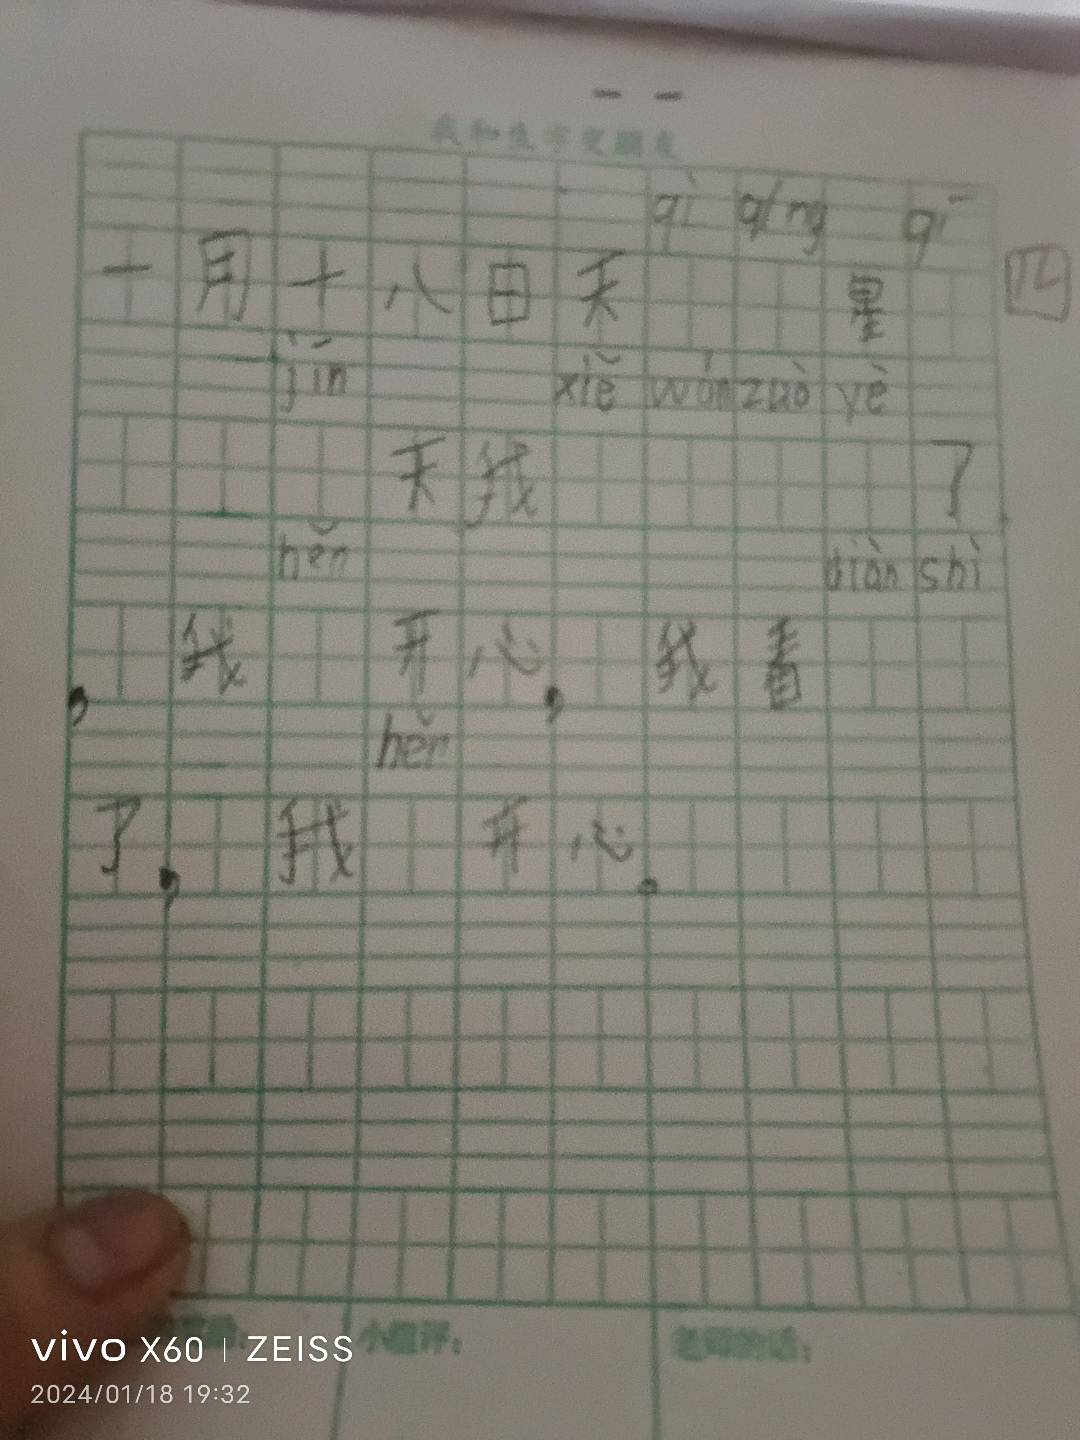 我和生字交朋友
qì qíng qī
一月十八日天 星 四
jīn xiě wán zuò yè
天我 了
hěn diàn shì
，我 开心，我看
hěn
了，我 开心。
小组评： 老师的话：
vivo X60 | ZEISS
2024/01/18 19:32